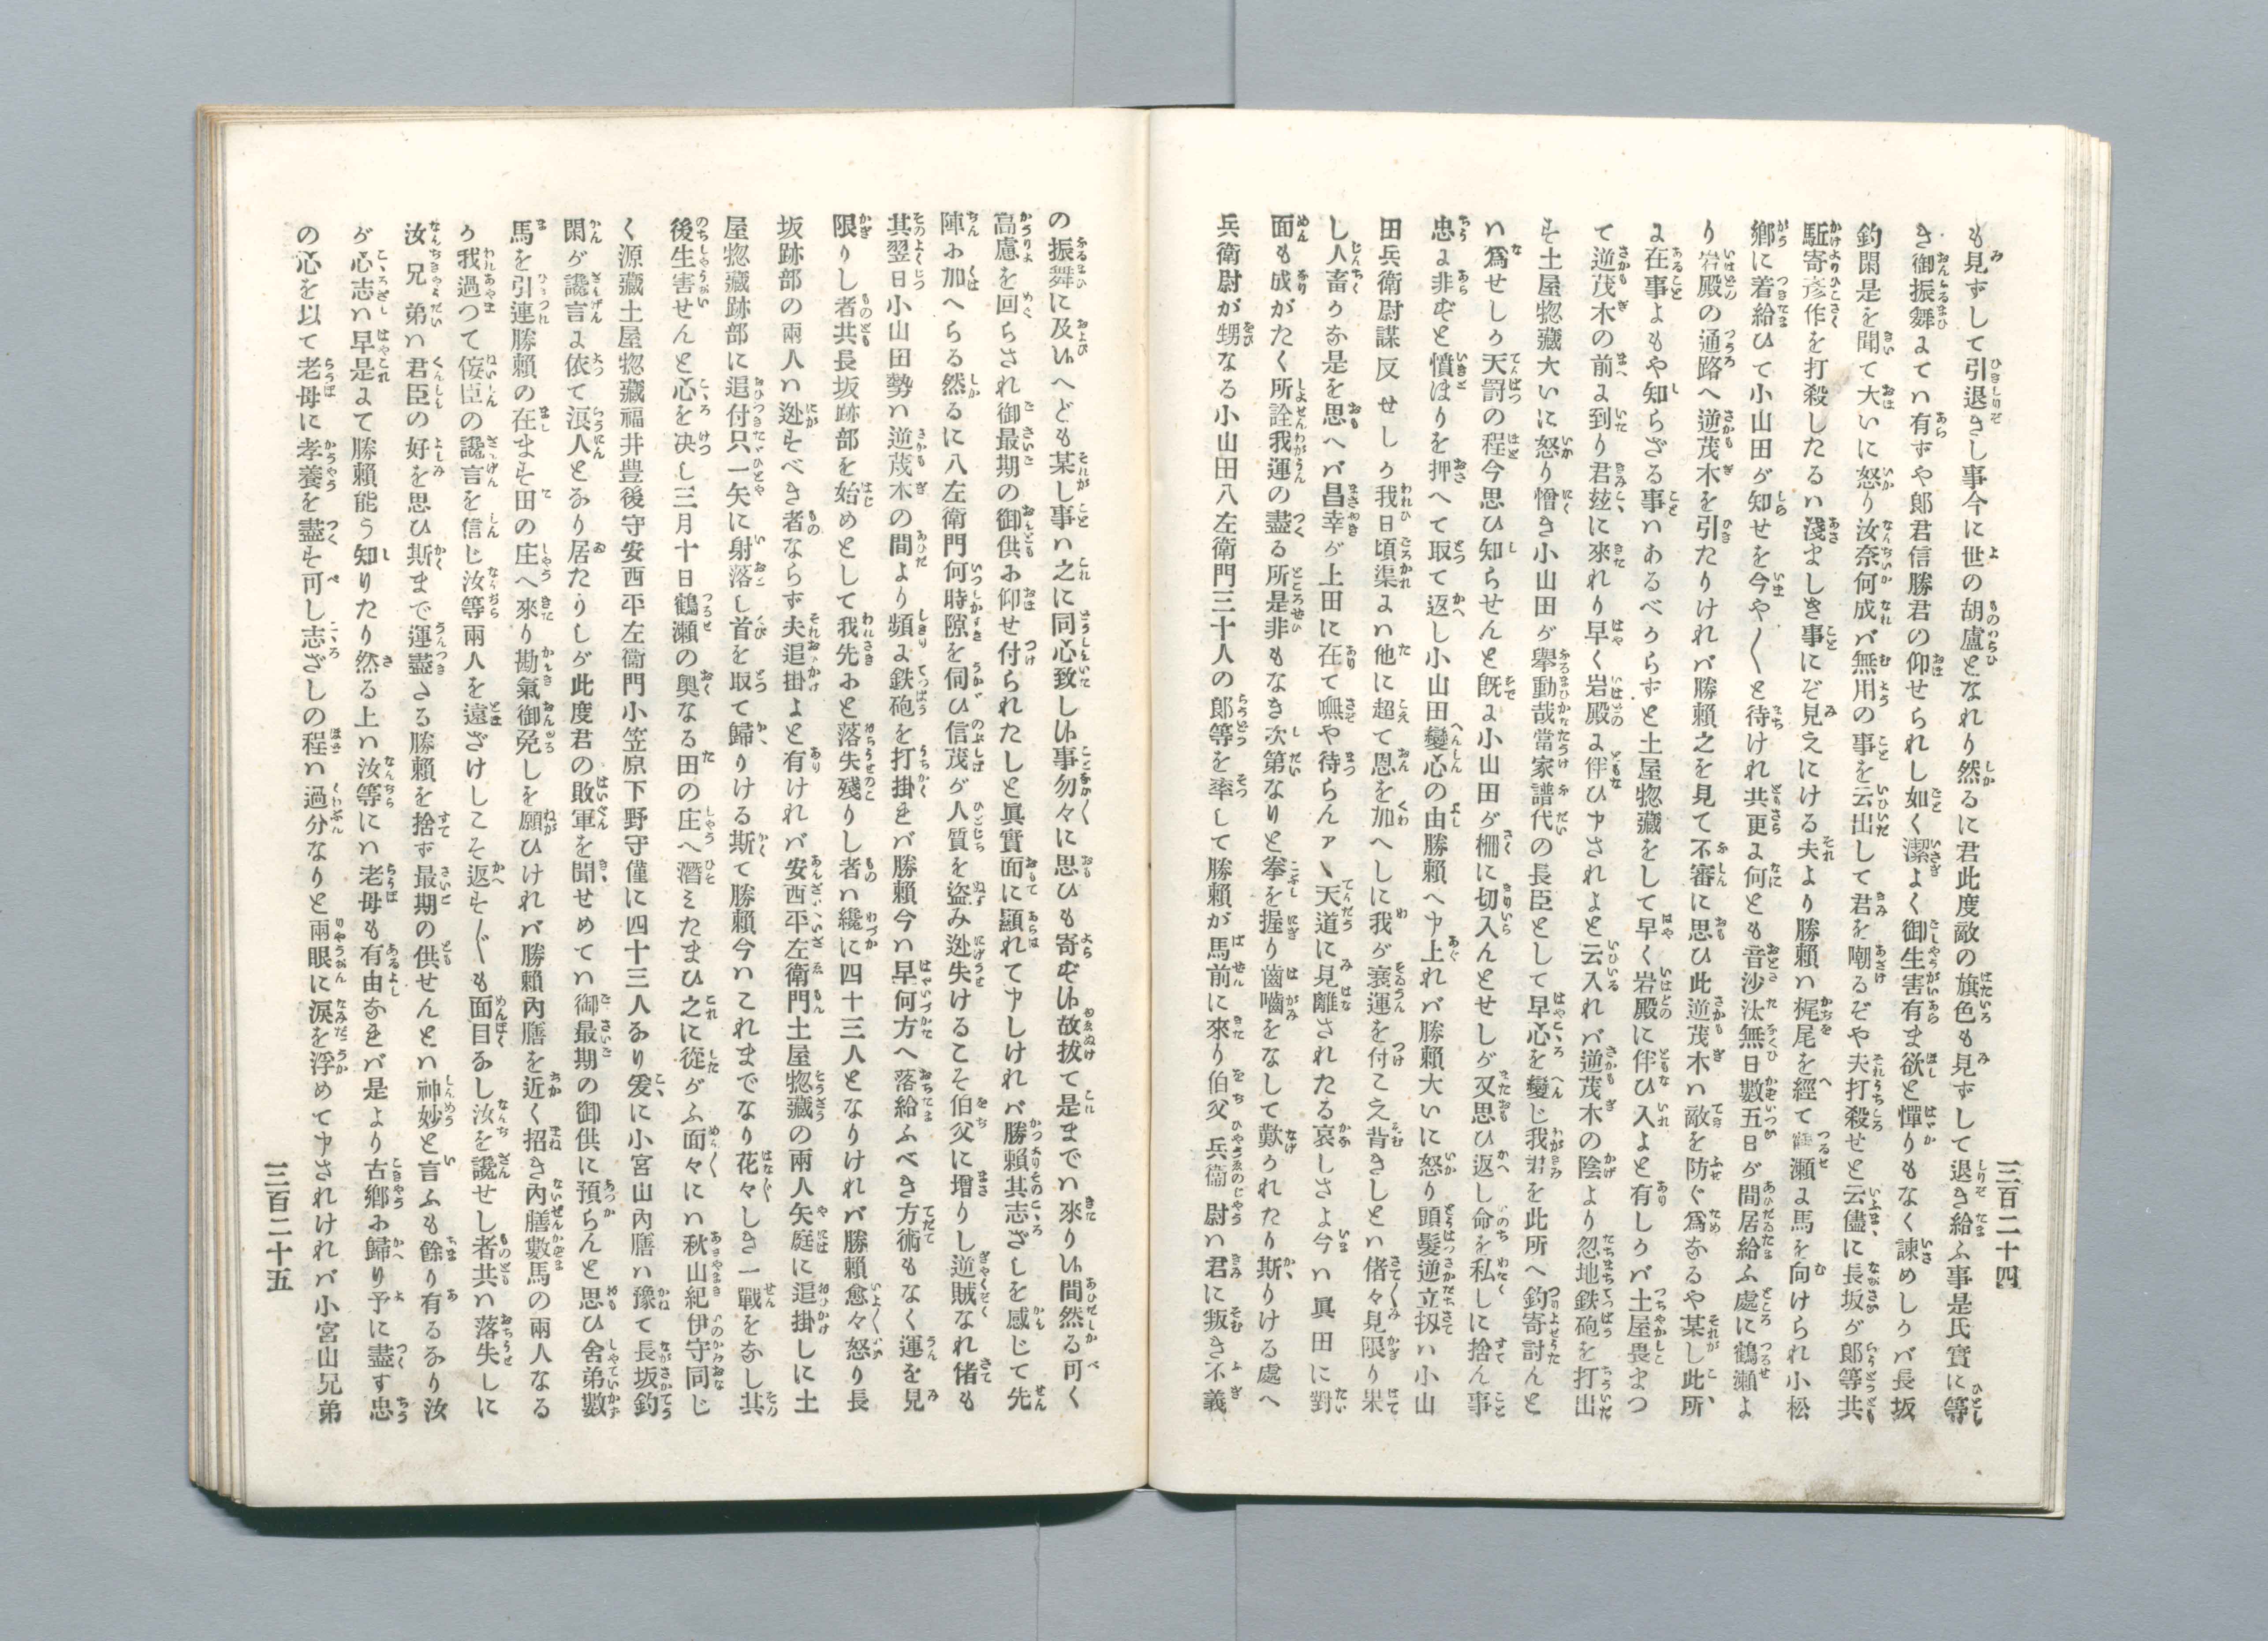 三百二十四
も見ずして引退きし事今に世の胡盧となれり然るに君此度敵の旗色も見ずして退き給ふ事是氏實に等
き御振舞よてハ有ずや郎君信勝君の仰せられし如く潔よく御生害有ま欲と憚りもなく諫めしかバ長坂
釣閑是を聞て大いに怒り汝奈何成バ無用の事を云出して君を嘲るぞや夫打殺せと云儘に長坂が郎等共
駈寄彦作を打殺したるハ淺ましき事にぞ見えにける夫より勝賴ハ梶尾を經て鶴瀬よ馬を向けられ小松
鄕に着給ひて小山田が知せを今や〱と待けれ共更よ何とも音沙汰無日數五日が間居給ふ處に鶴瀬よ
り岩殿の通路へ逆茂木を引たりけれバ勝賴之を見て不審に思ひ此逆茂木ハ敵を防ぐ爲なるや某し此所
よ在事よもや知らざる事ハあるべからずと土屋惣藏をして早く岩殿に伴ひ入よと有しかバ土屋畏まつ
て逆茂木の前よ到り君玆に來れり早く岩殿よ伴ひ申されよと云入れバ逆茂木の陰より忽地鉄砲を打出
す土屋惣藏大いに怒り憎き小山田が擧動哉當家譜代の長臣として早心を變じ我君を此所へ釣寄討んと
ハ爲せしか天罰の程今思ひ知らせんと旣よ小山田が柵に切入んとせしが又思ひ返し命を私しに捨ん事
忠よ非ずと憤ほりを押へて取て返し小山田變心の由勝賴へ申上れバ勝賴大いに怒り頭髮逆立扨ハ小山
田兵衛尉謀反せしか我日頃渠よハ他に超て恩を加へしに我が衰運を付こえ背きしとハ偖々見限り果
し人畜かな是を思へバ昌幸が上田に在て嘸や待らんアヽ天道に見離されたる哀しさよ今ハ眞田に對
面も成がたく所詮我運の盡る所是非もなき次第なりと拳を握り齒嚙をなして歎かれたり斯りける處へ
兵衛尉が甥なる小山田八左衛門三十人の郎等を率して勝賴が馬前に來り伯父兵衛尉ハ君に叛き不義
の振舞に及いへども某し事ハ之に同心致しい事勿々に思ひも寄ずい故拔て是までハ來りい間然る可く
高慮を回らされ御最期の御供お仰せ付られたしと眞實面に顯れて申しけれバ勝賴其志ざしを感じて先
陣お加へらる然るに八左衛門何時隙を伺ひ信茂が人質を盜み迯失けるこそ伯父に增りし逆賊なれ偖も
其翌日小山田勢ハ逆茂木の間より頻よ鉄砲を打掛ればバ勝賴今ハ早何方へ落給ふべき方術もなく運を見
限りし者共長坂跡部を始めとして我先おと落失殘りし者ハ纔に四十三人となりけれバ勝賴愈々怒り長
坂跡部の兩人ハ迯すべき者ならず夫追掛よと有けれバ安西平左衛門土屋惣藏の兩人矢庭に追掛しに土
屋惣藏跡部に追付只一矢に射落し首を取て歸りける斯て勝賴今ハこれまでなり花々しき一戰をなし其
後生害せんと心を决し三月十日鶴瀬の奧なる田の庄へ潛ミたまひ之に從がふ面々にハ秋山紀伊守同じ
く源藏土屋惣藏福井豊後守安西平左衛門小笠原下野守僅に四十三人なり爰に小宮山內膳ハ豫て長坂釣
閑が讒言よ依て浪人となり居たりしが此度君の敗軍を聞せめてハ御最期の御供に預らんと思ひ舍弟數
馬を引連勝賴の在ます田の庄へ來り勘氣御免しを願ひけれバ勝賴內膳を近く招き內膳數馬の兩人なる
か我過つて侫臣の讒言を信じ汝等兩人を遠ざけしこそ返す〲も面目なし汝を讒せし者共ハ落失しに
汝兄弟ハ君臣の好を思ひ斯まで運盡たる勝賴を捨ず最期の供せんとハ神妙と言ふも餘り有るなり汝
が心志ハ早是よて勝賴能う知りたり然る上ハ汝等にハ老母も有由なれバ是より古鄕お歸り予に盡す忠
の心を以て老母に孝養を盡す可し志ざしの程ハ過分なりと兩眼に淚を浮めて申されけれバ小宮山兄弟
三百二十五